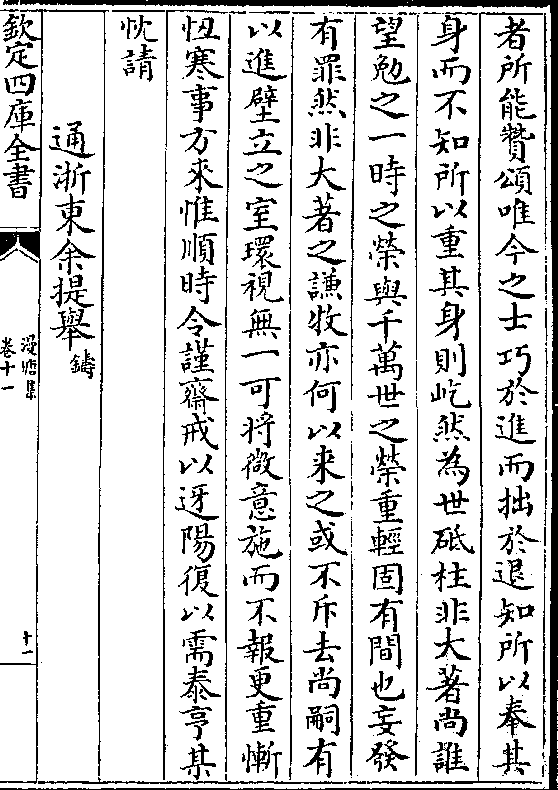 者所能贊頌唯今之士巧於進而拙於退知所以奉其
身而不知所以重其身則屹然為世砥柱非大著尚誰
望勉之一時之榮與千萬世之榮重輕固有間也妄發
有罪然非大著之謙牧亦何以来之或不斥去尚嗣有
以進壁立之室環視無一可將微意施而不報更重慚
忸寒事方來惟順時令謹齋戒以迓陽復以需泰亨某
忱請
通浙東余提舉鑄
欽定四庫全書
漫塘集
卷十一
十一